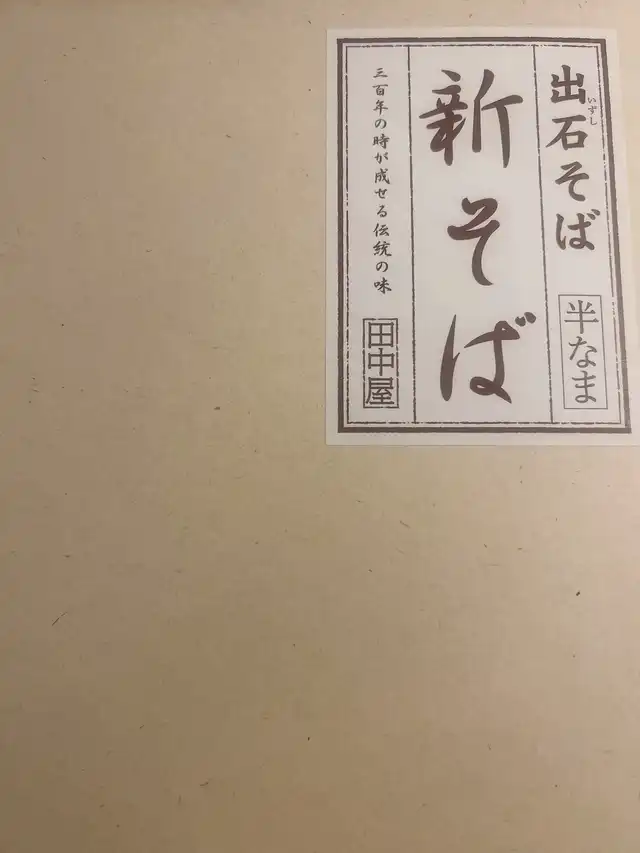 出石そば
いずし
半なま
新そば
三百年の時が成せる伝統の味
田中屋